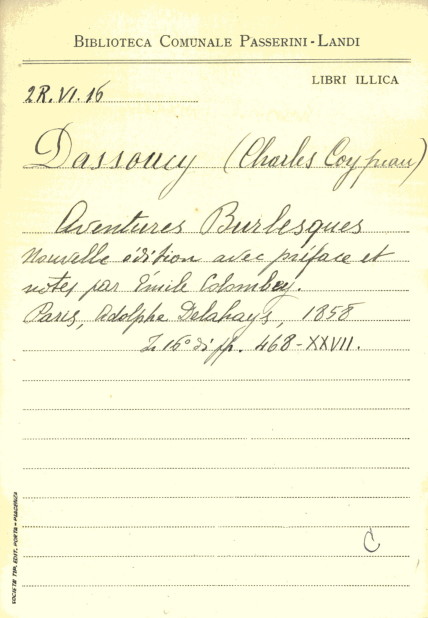 BIBLIOTECA COMUNALE PASSERINI-LANDI
LIBRI ILLICA
2R.VI.16
Dassoucy (Charles Coypeau)
Aventures Burlesques
Nouvelle édition avec préface et
notes par Émile Colombey.
Paris, Adolphe Delahays, 1858
In 16° di pp. 468-XXVII.
C
SOCIETÀ TIP. EDIT. PORTA - PIACENZA